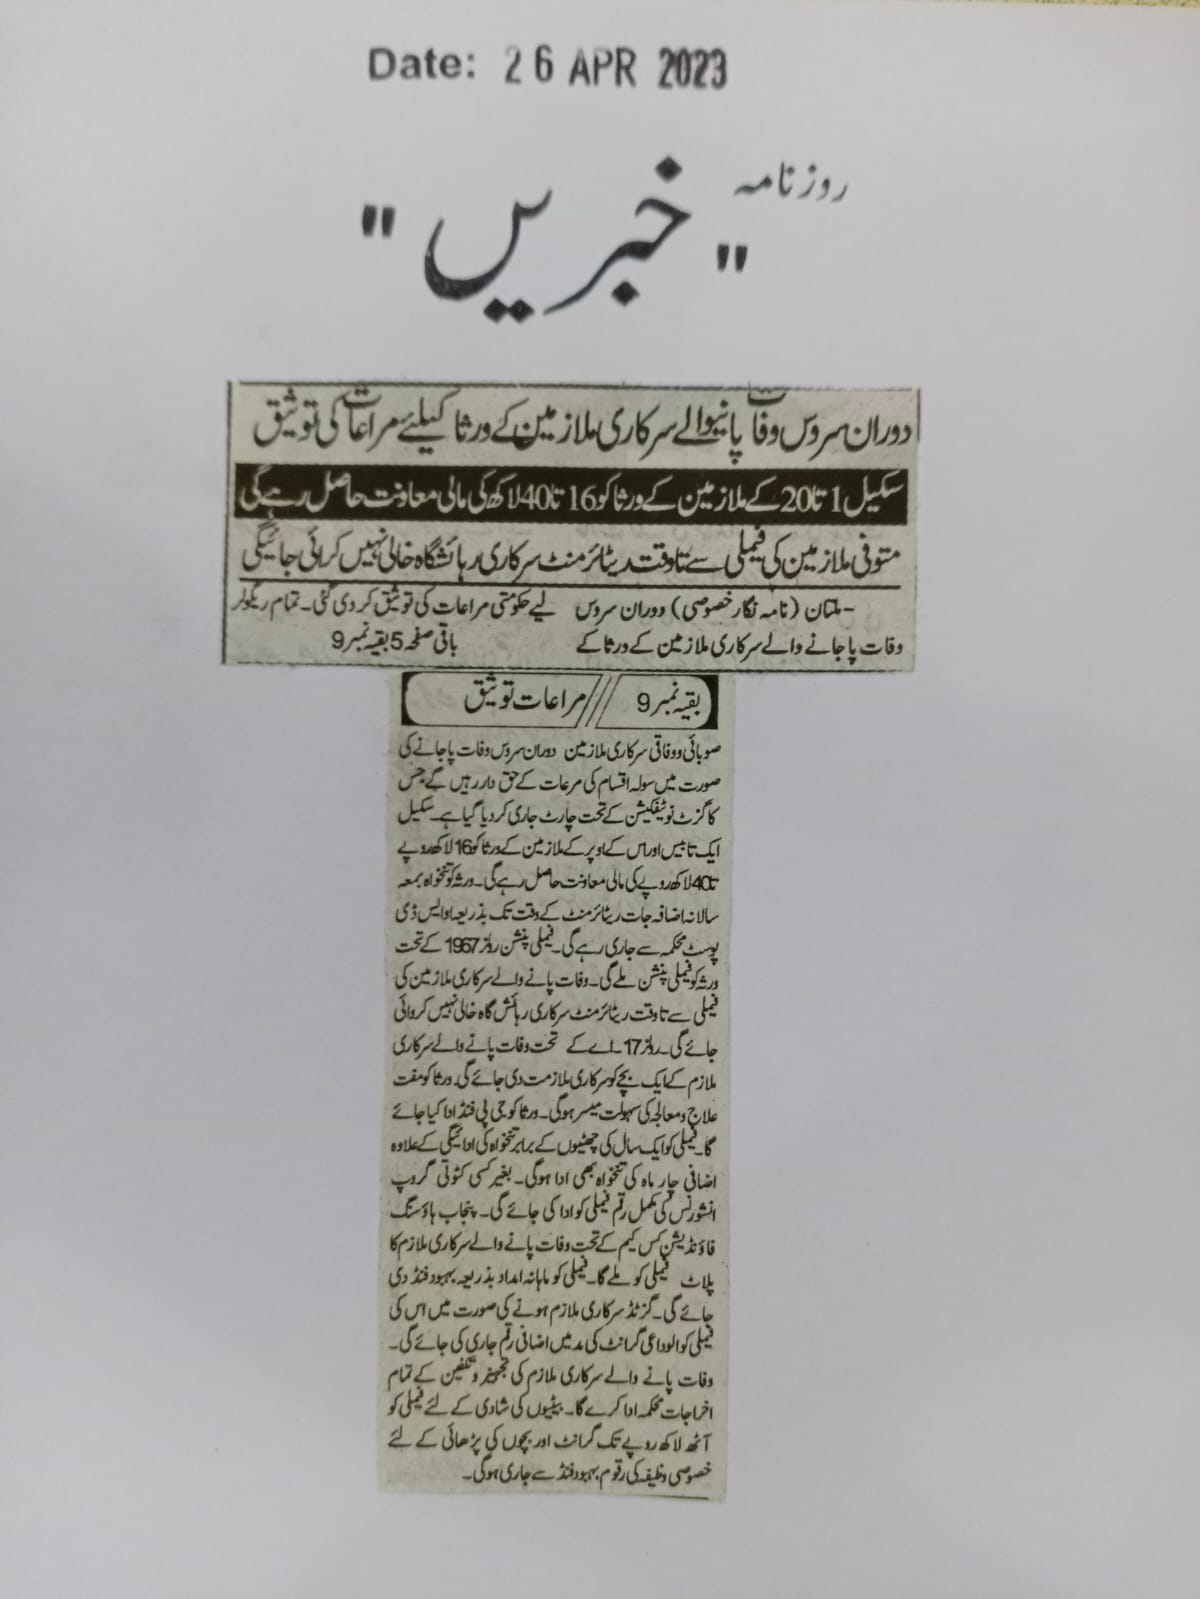 Date: 26 APR 2023
روزنامہ
"خبریں"
دوران سروس وفات پانیوالے سرکاری ملازمین کے ورثا کیلئے مراعات کی توثیق
سکیل 1 تا 20 کے ملازمین کے ورثا کو 16 تا 40 لاکھ کی مالی معاونت حاصل رہے گی
متوفی ملازمین کی فیملی سے تاوقت ریٹائرمنٹ سرکاری رہائشگاہ خالی نہیں کرائی جائیگی
ملتان (نامہ نگار خصوصی) دوران سروس
وفات پا جانے والے سرکاری ملازمین کے ورثا کے
لیے حکومتی مراعات کی توثیق کر دی گئی۔ تمام ریگولر
باقی صفحہ 5 بقیہ نمبر 9
بقیہ نمبر 9 // مراعات توثیق
صوبائی و وفاقی سرکاری ملازمین دوران سروس وفات پا جانے کی
صورت میں سولہ اقسام کی مرعات کے حق دار رہیں گے جس
کا گزٹ نوٹیفکیشن کے تحت چارٹ جاری کر دیا گیا ہے۔ سکیل
ایک تا بیس اور اس کے اوپر کے ملازمین کے ورثا کو 16 لاکھ روپے
تا 40 لاکھ روپے کی مالی معاونت حاصل رہے گی۔ ورثہ کو تنخواہ بمعہ
سالانہ اضافہ جات ریٹائرمنٹ کے وقت تک بذریعہ او ایس ڈی
پوسٹ محکمہ سے جاری رہے گی۔ فیملی پنشن رولز 1967 کے تحت
ورثہ کو فیملی پنشن ملے گی۔ وفات پانے والے سرکاری ملازمین کی
فیملی سے تاوقت ریٹائرمنٹ سرکاری رہائش گاہ خالی نہیں کروائی
جائے گی۔ رولز 17۔اے کے تحت وفات پانے والے سرکاری
ملازم کے ایک بچے کو سرکاری ملازمت دی جائے گی۔ ورثا کو مفت
علاج و معالجہ کی سہولت میسر ہوگی۔ ورثا کو جی پی فنڈ ادا کیا جائے
گا۔ فیملی کو ایک سال کی چھٹیوں کے برابر تنخواہ کی ادائیگی کے علاوہ
اضافی چار ماہ کی تنخواہ بھی ادا ہوگی۔ بغیر کسی کٹوتی گروپ
انشورنس کی مکمل رقم فیملی کو ادا کی جائے گی۔ پنجاب ہاؤسنگ
فاؤنڈیشن کس کیم کے تحت وفات پانے والے سرکاری ملازم کا
پلاٹ فیملی کو ملے گا۔ فیملی کو ماہانہ امداد بذریعہ بہبود فنڈ دی
جائے گی۔ گزٹڈ سرکاری ملازم ہونے کی صورت میں اس کی
فیملی کو الوداعی گرانٹ کی مد میں اضافی رقم جاری کی جائے گی۔
وفات پانے والے سرکاری ملازم کی تجہیز و تکفین کے تمام
اخراجات محکمہ ادا کرے گا۔ بیٹیوں کی شادی کے لئے فیملی کو
آٹھ لاکھ روپے تک گرانٹ اور بچوں کی پڑھائی کے لئے
خصوصی وظیفہ کی رقوم بہبود فنڈ سے جاری ہوگی۔